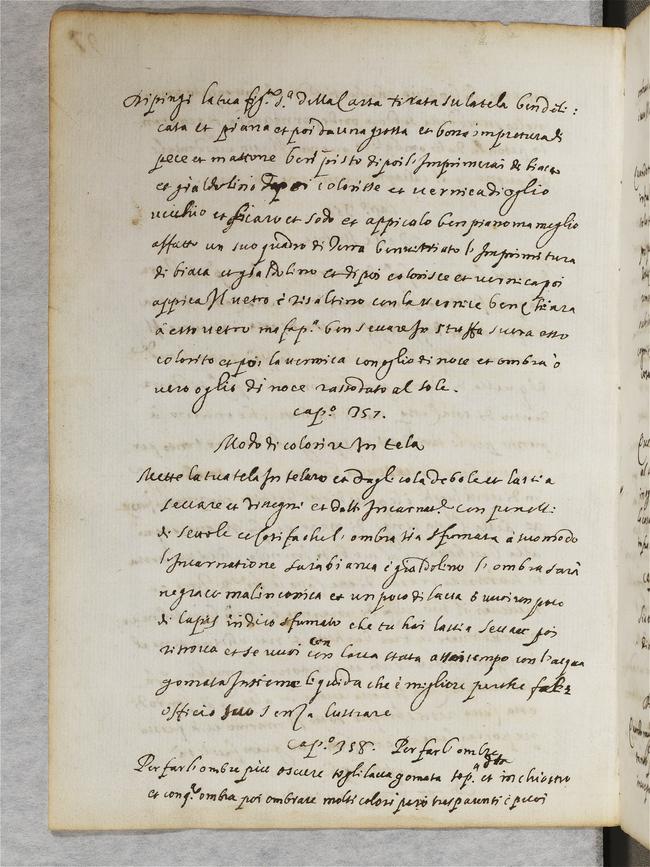 Dipingi la tua fig.ra d.a della Carta tirata su la tela ben deli:
cata et piana et poi da una grossa et bona imprettura di
pece et mattone ben pisto di poi l'Imprimerai di biacca
et gialdolino dapoi colorisse et vernica di oglio
vecchio et chiaro et sodo et appicalo ben piano ma meglio
affatto un suo quadro di Terra ben vitriato l'Imprimitura
di biaca et gialdolino et di poi colorisce et vernica poi
appica Il vetro cristallino con la vernice ben chiara
à esso vetro ma fa p.a ben seccare In stuffa sucra esso
colorito et poi la vernica con oglio di noce et ombra ò
vero oglio di noce rassodato al sole.
cap.o 357.
Modo di colorire In tela
Mette la tua tela In telaro et dagli cola debole et lassia
seccare et disegni et dalli Incarnat.e con penelli
di setole et cosi fa che l'ombra sia sfumata à tuo modo
l'Incarnatione sarà bianca è gialdolino l'ombra sarà
negra et malinconica et un poco di lacca ò vuoi un poco
di lapis indico sfumato che tu hai lassia seccare poi
ritrova et se vuoi con lacca et ata a un tempo con l'acqua
gomata Insieme liquida che è migliore perche fa le
officio suo senza lustrare
cap.o 358. Per far l'ombre
Per far l'ombre piu oscure togli lacca gomata sop.a d.tta et inchiostro
et con q.a ombra poi ombrare molti colori però trasparenti è puoi